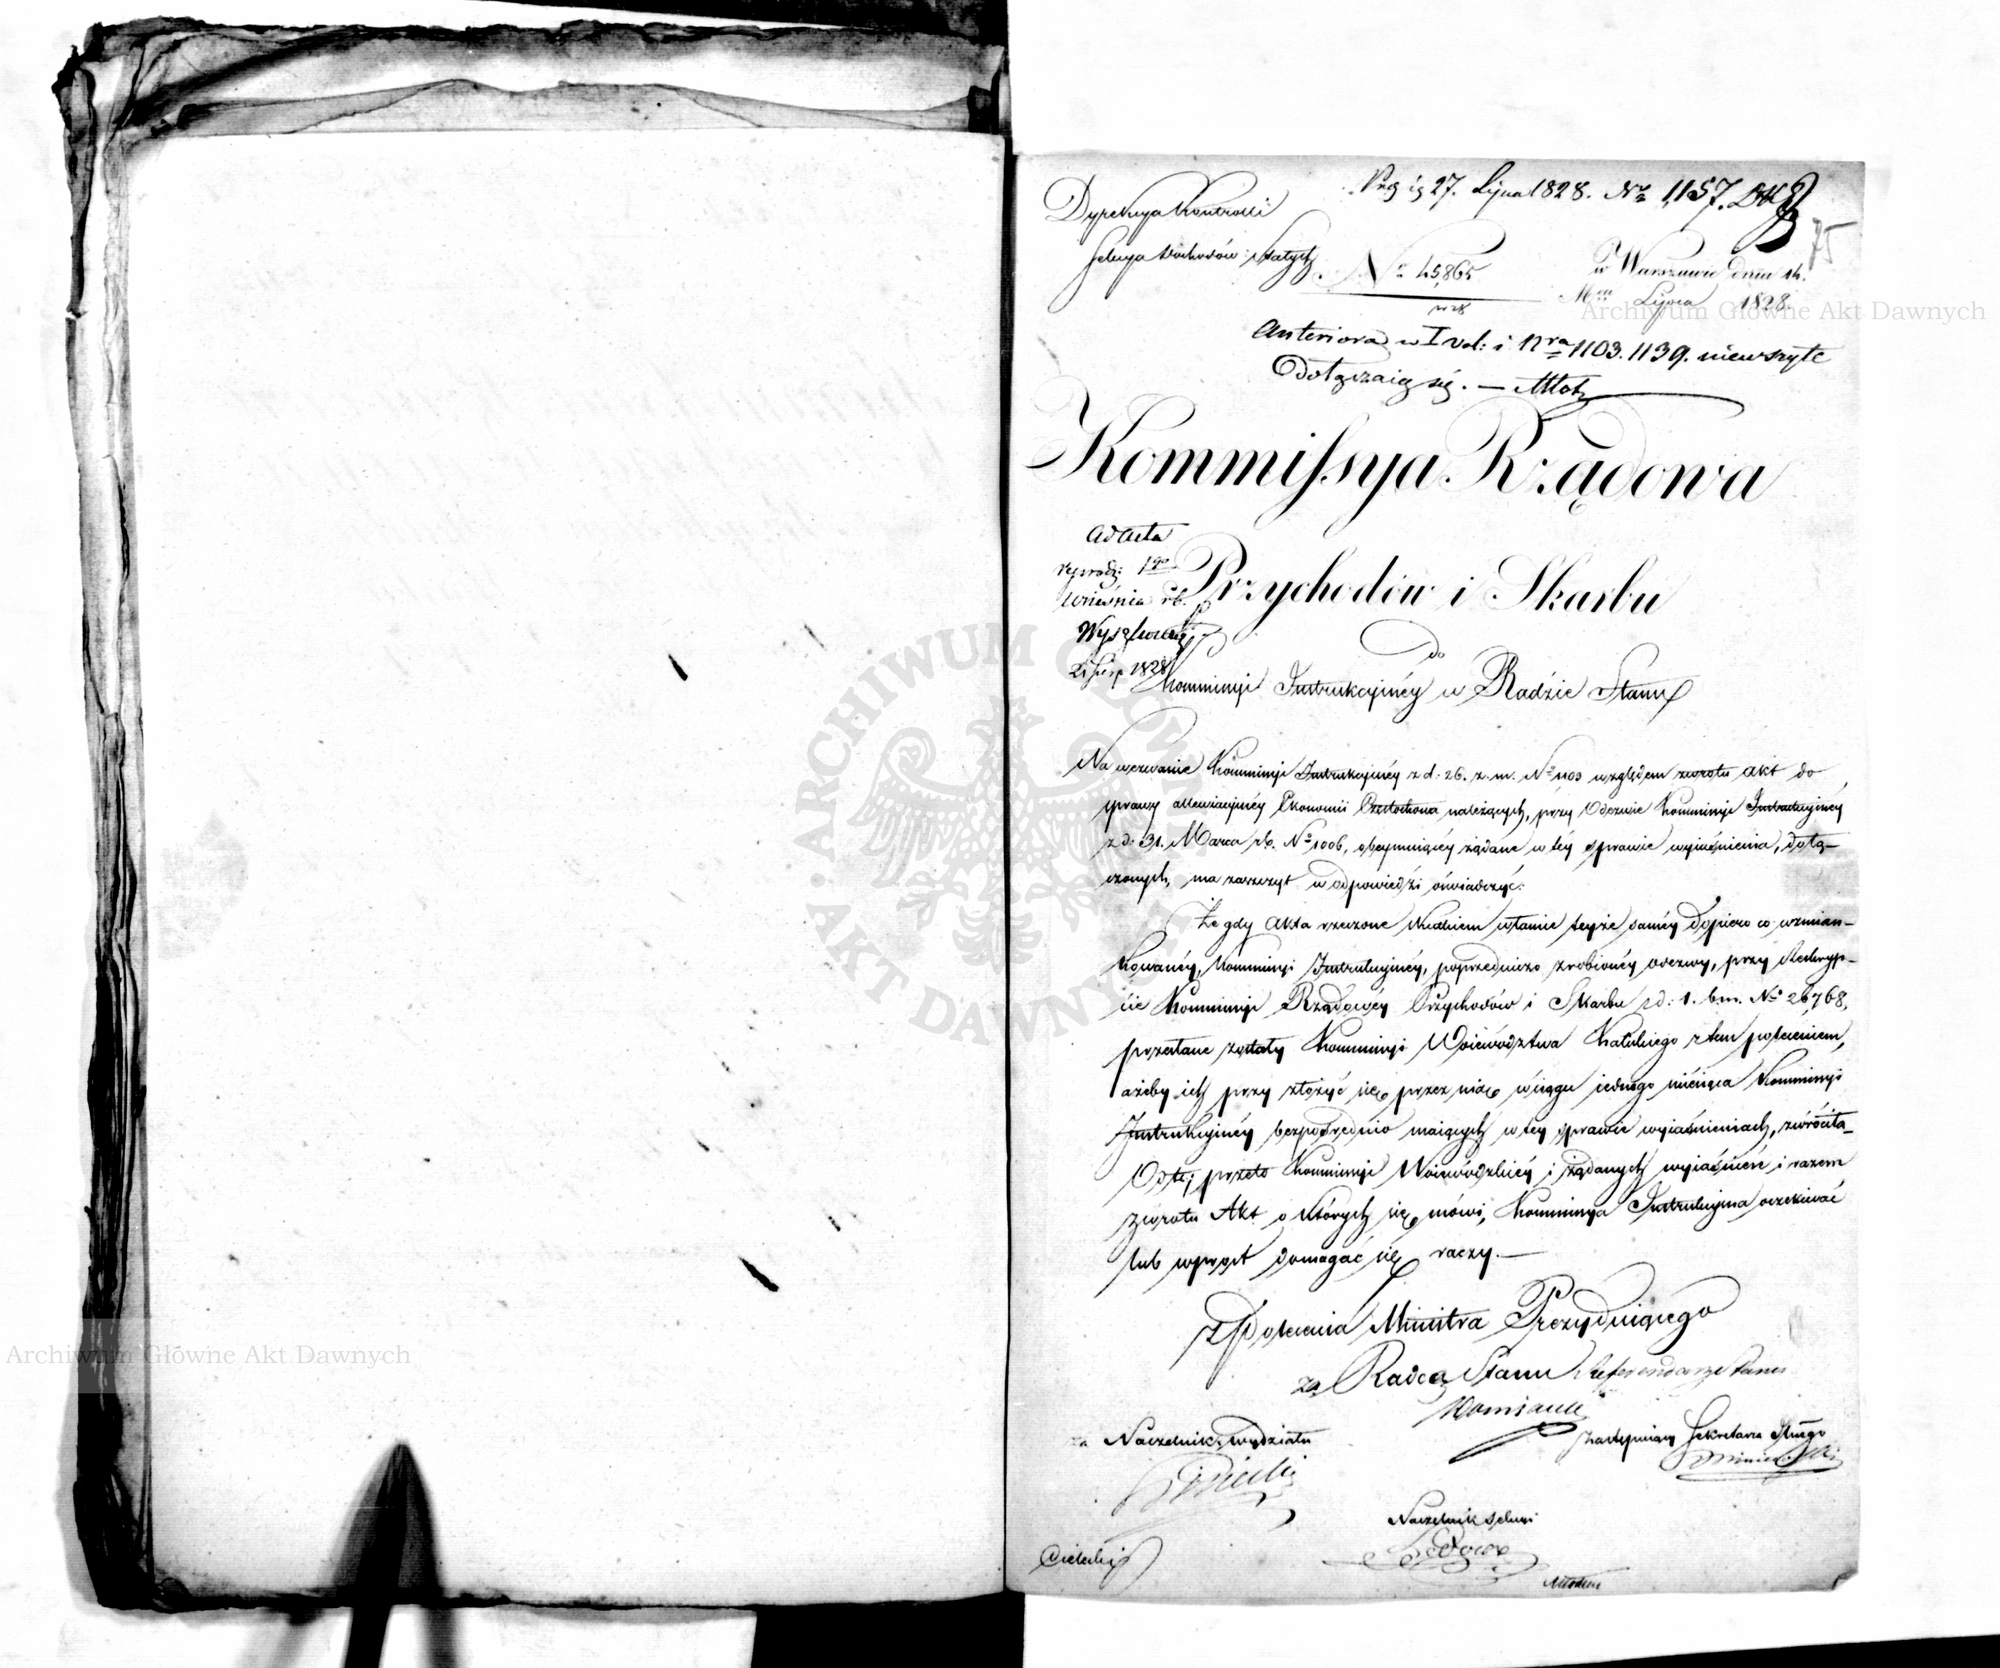 27. Lipca 1828. Nr 1157.
75
Dyrekcya Kontrolli
Sekcya dochodów stałych
No 45,865
w Warszawie dnia 14.
Mca Lipca 1828.
Anteriora w I vol: i Nra 1103. 1139. niewszyte
Dołączaią się. —
Kommissya Rządowa
Przychodów i Skarbu
ad Acta
1go
Września rb.
1828
do
Kommissyi Instrukcyinéy w Radzie Stanu
Na wezwanie Kommissyi Instrukcyinéy z d: 26. z. m. No 1103 względem zwrotu akt do
sprawy allewiacyinéy Ekonomii należących, przy Odezwie Kommissyi Instrukcyinéy
z d: 31. Marca rb. No 1006, obeymuiącéy żądane w téy sprawie wyiaśnienia, dołą-
czonych, ma zaszczyt w odpowiedzi oświadczyć:
Że gdy Akta rzeczone skutkiem właśnie teyże saméy dopiero co wzmian-
kowanéy, Kommissyi Instrukcyinéy, poprzedniczo zrobionéy odezwy, przy Reskryp-
cie Kommissyi Rządowéy Przychodów i Skarbu z d: 1. b. m. No 26,768,
przesłane zostały Kommissyi Woiewództwa Kaliskiego z tem poleceniem,
ażeby ich przy złożyć się przez nię w ciągu iednego miesiąca Kommissyi
Instrukcyinéy bezpośrednio maiących w tey sprawie wyiaśnieniach, zwróciła.
Od téj przeto Kommissyi Woiewódzkiéy i żądanych wyiaśnień i razem
zwrotu Akt o których się mówi, Kommissya Instrukcyina oczekiwać
lub wprost domagać się raczy. —
z Polecenia Ministra Prezyduiącego
za Radcę Stanu Referendarz Stanu
za Naczelnik wydziału
Zastępuiący Sekretarza Jlnego
Naczelnik Sekcyi
Archiwum Główne Akt Dawnych
Archiwum Główne Akt Dawnych
ARCHIWUM GŁÓWNE AKT DAWNYCH